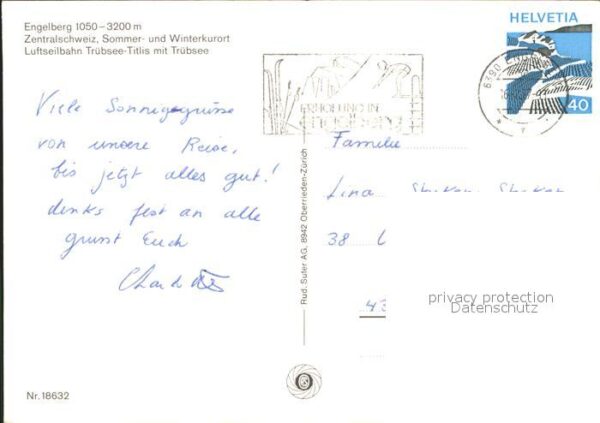 Engelberg 1050–3200 m
Zentralschweiz, Sommer- und Winterkurort
Luftseilbahn Trübsee-Titlis mit Trübsee
HELVETIA
40
6390 ENGELBERG
ERHOLUNG IN
engelberg
Viele Sonnengrüsse
von unsere Reise,
bis jetzt alles gut!
denks fest an alle
grusst Euch
Familie
Lina
38
43
Rud. Suter AG, 8942 Oberrieden-Zürich
privacy protection
Datenschutz
Nr. 18632